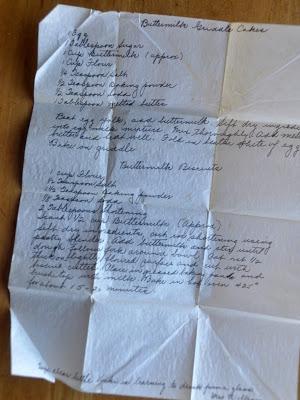 Buttermilk Griddle Cakes
1 Egg
1 Tablespoon Sugar
1 Cup Buttermilk (approx)
1 Cup Flour
1/4 Teaspoon Salt
1/2 Teaspoon Baking powder
1/2 Teaspoon Soda
1 Tablespoon melted butter
Beat egg yolk, add buttermilk. Sift dry ingredients
into egg-milk mixture. Mix thoroughly. Add melted
butter and beat well. Fold in beaten white of egg.
Bake on griddle
Buttermilk Biscuits
1 cup Flour
Teaspoon Salt
Teaspoon Baking powder
Teaspoon Soda
2 Tablespoons Shortening
Scant 1/2 cup Buttermilk (Approx)
Sift dry ingredients, cut in shortening using
pastry blender. Add buttermilk and stir until
dough follows fork around bowl. Pat out 1/2"
thick on lightly floured surface and cut with
biscuit cutter. Place in greased baking pan and
brush tops with milk. Bake in hot oven 425°
for about 15-20 minutes
dear little is learning to drink from a glass.